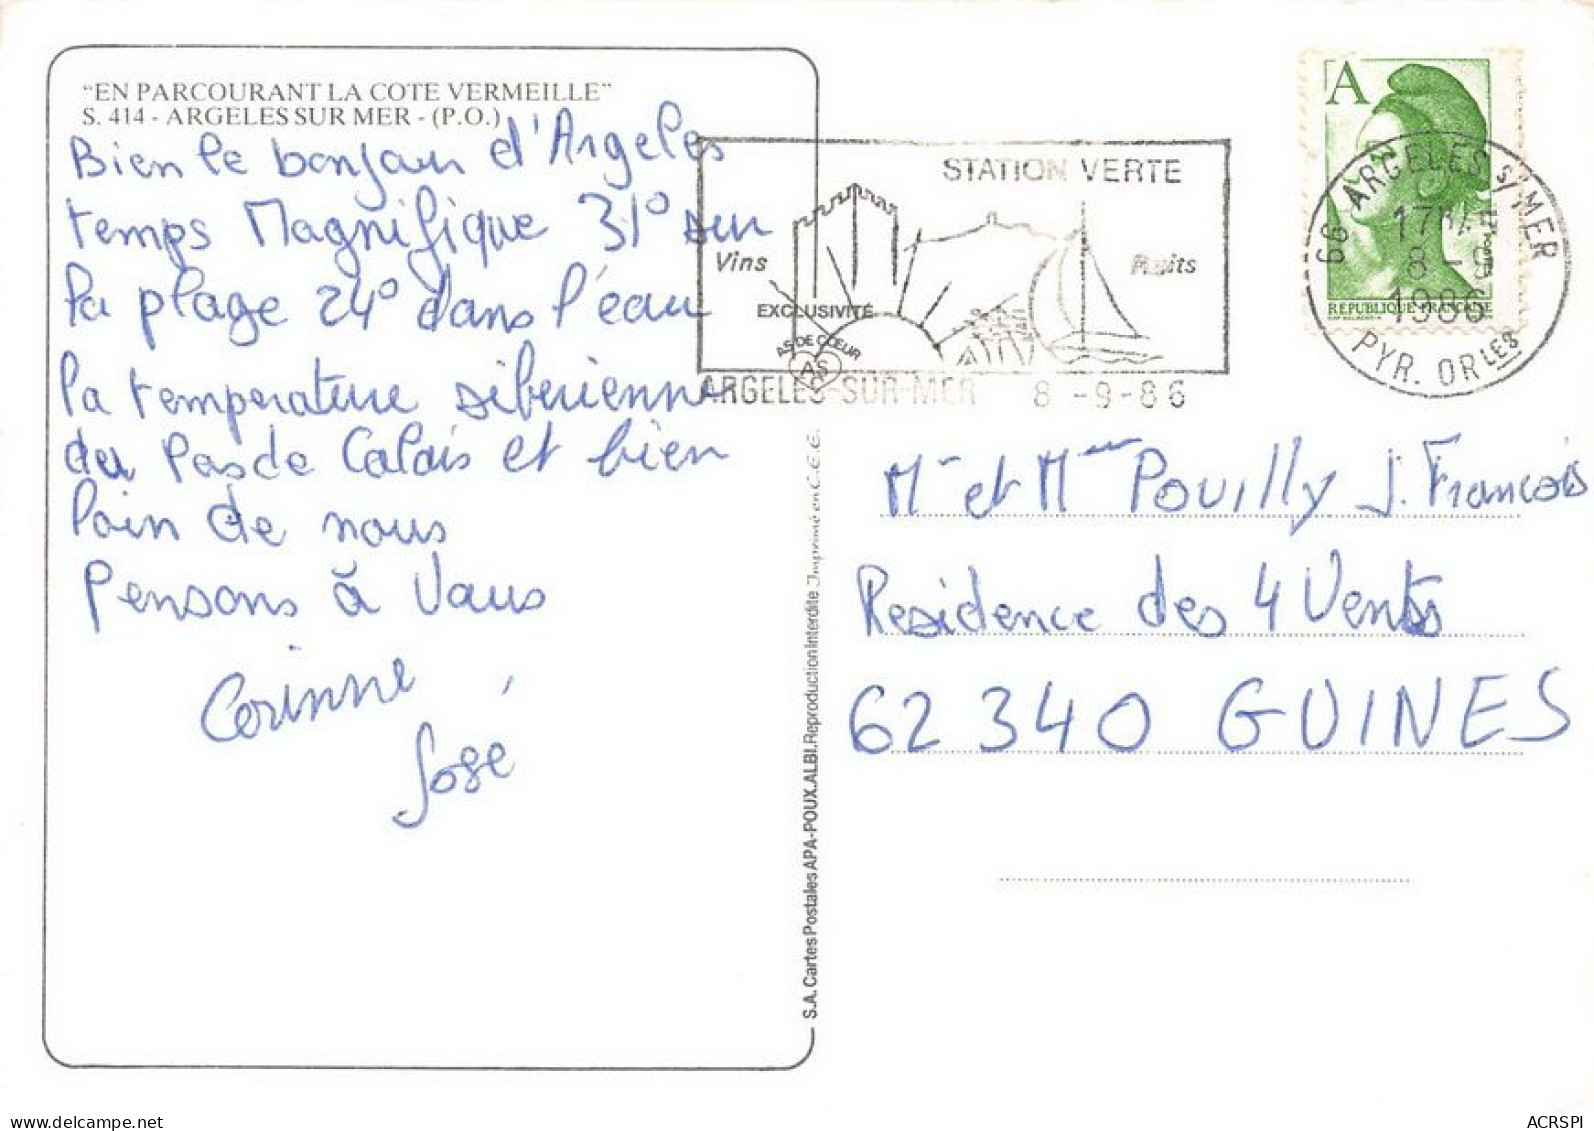 "EN PARCOURANT LA COTE VERMEILLE"
S. 414 - ARGELES SUR MER - (P.O.)
Bien le bonjour d'Argeles
temps Magnifique 31° sur
la plage 24° dans l'eau
la temperature siberienne
du Pas de Calais et bien
loin de nous
Pensons à Vous
Corinne,
José
STATION VERTE
Vins
Fruits
EXCLUSIVITÉ
AS DE CŒUR
AS
ARGELES-SUR-MER 8-9-86
A
RÉPUBLIQUE FRANÇAISE
66 ARGELES S/MER
17H
8-9
1986
PYR. ORLES
Mr et Mme Pouilly J. Francois
Residence des 4 Vents
62340 GUINES
S.A. Cartes Postales APA-POUX.ALBI. Reproduction interdite Imprimé en C.E.E.
www.delcampe.net
ACRSPI